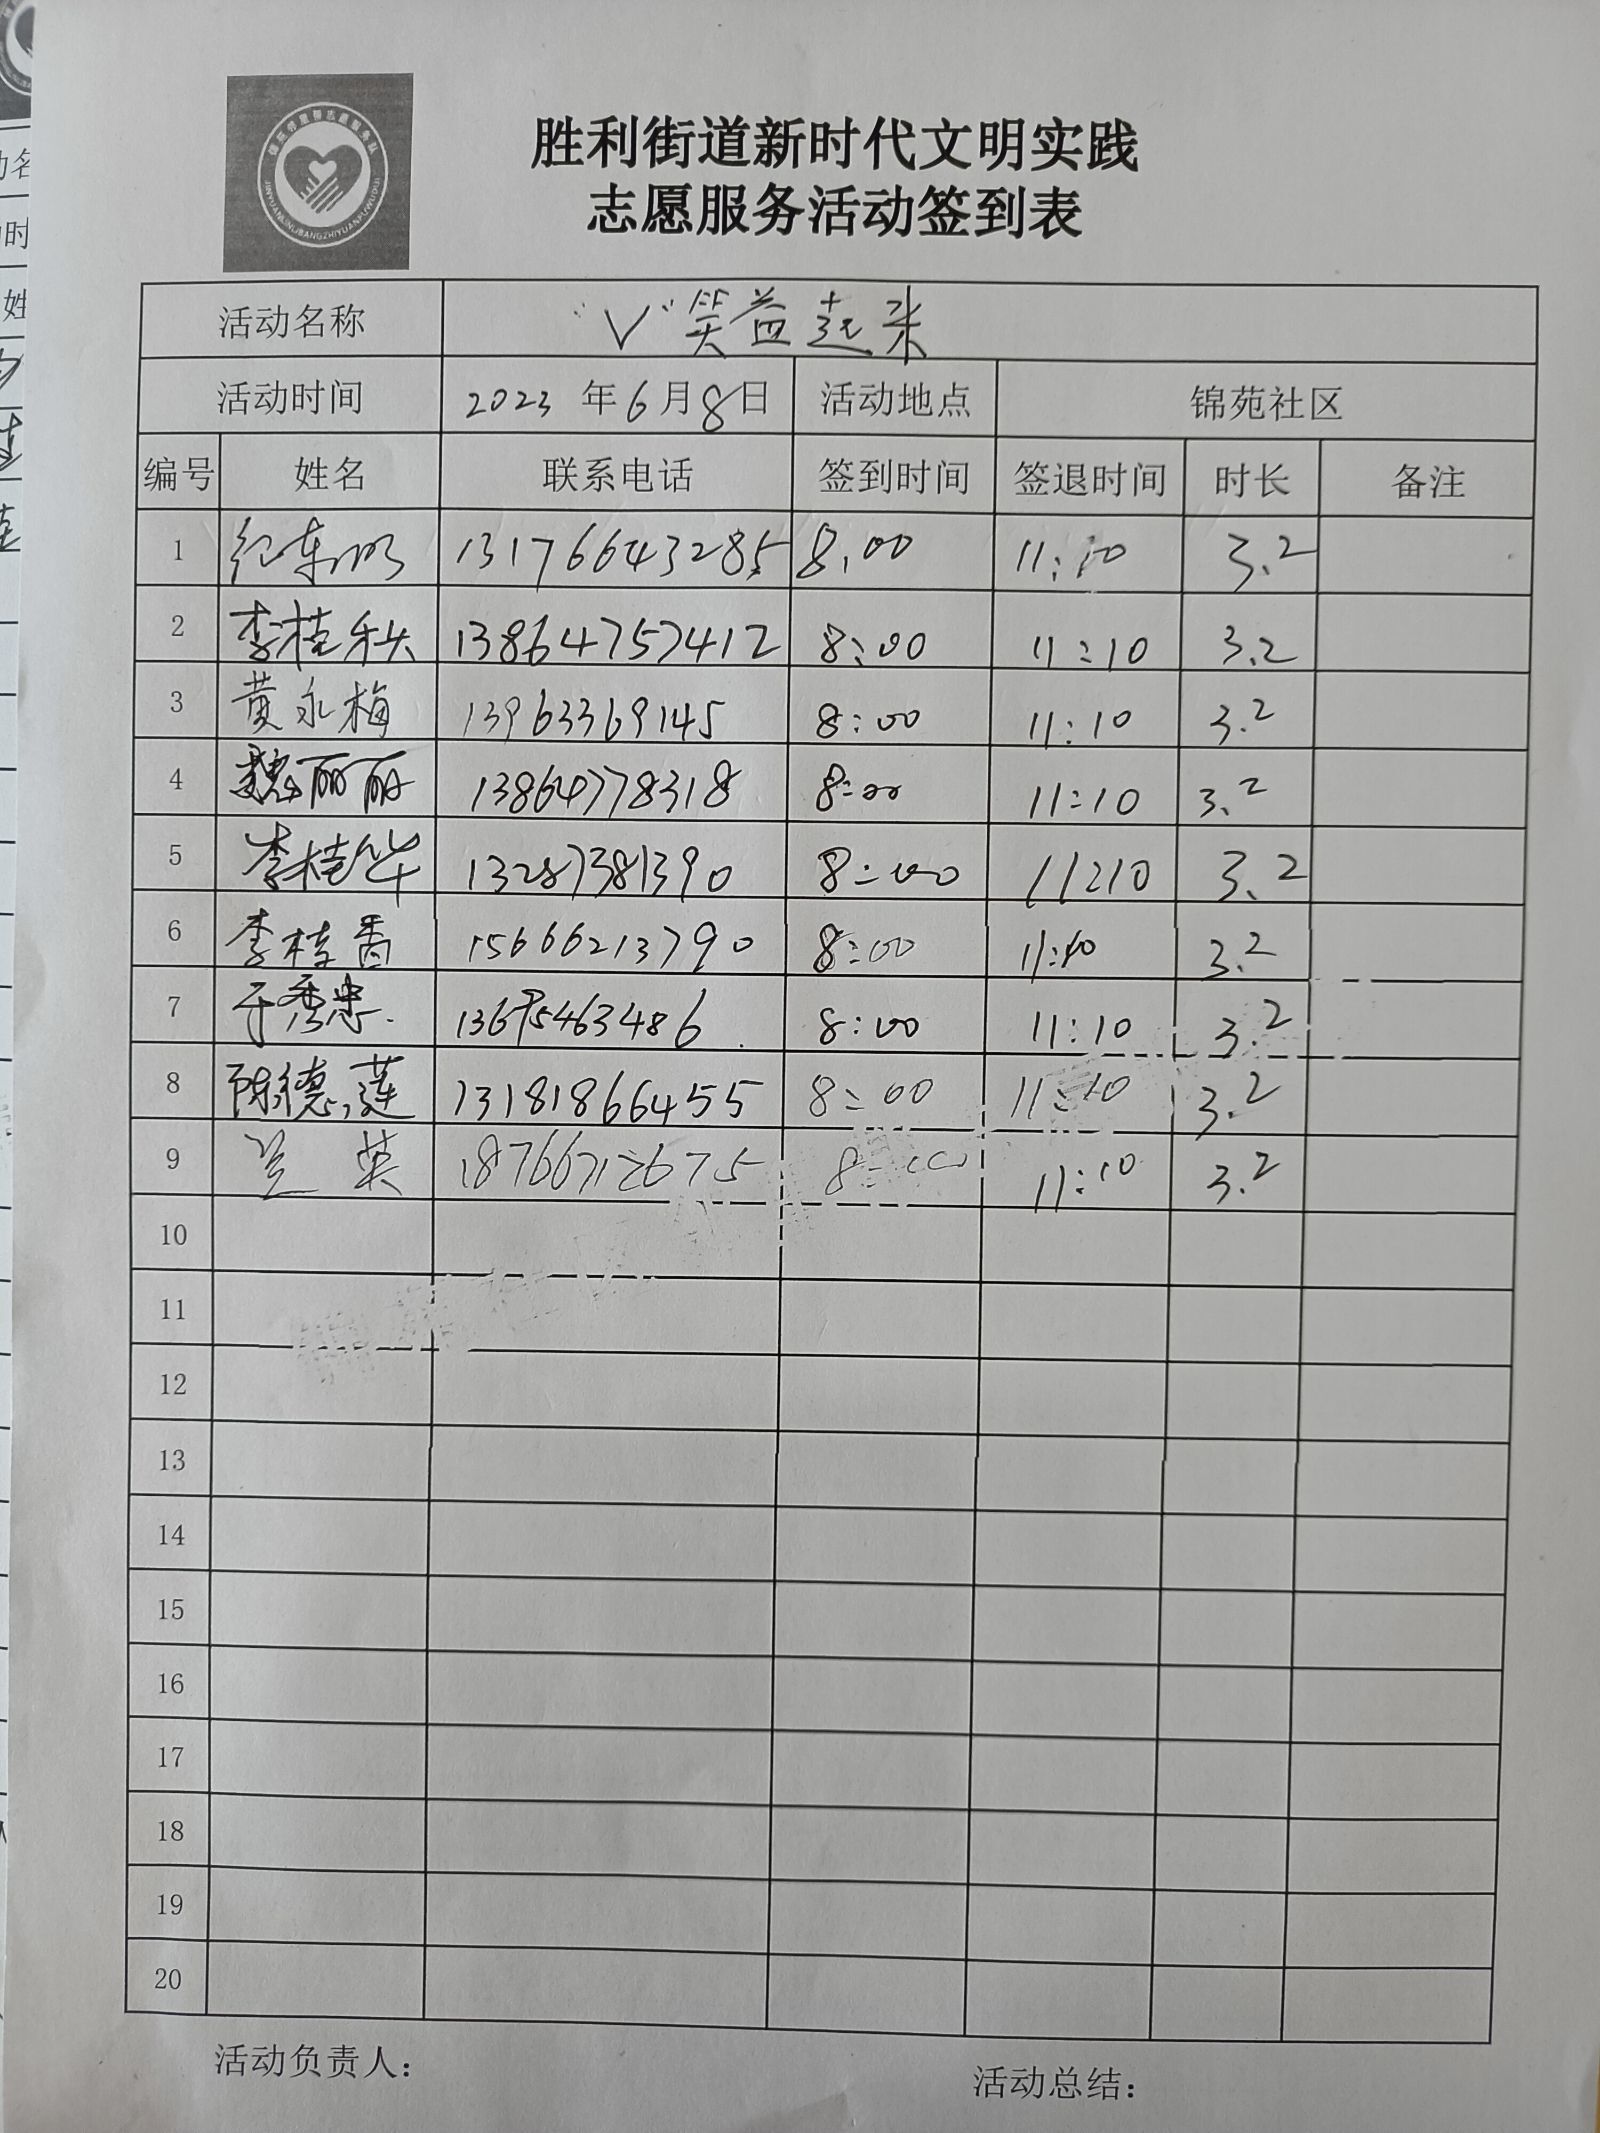 胜利街道新时代文明实践
志愿服务活动签到表
活动名称 "V"笑益起来
活动时间 2023年6月8日 活动地点 锦苑社区
编号 姓名 联系电话 签到时间 签退时间 时长 备注
1 纪东明 13176643285 8:00 11:10 3.2
2 李桂秋 13864757412 8:00 11:10 3.2
3 黄永梅 13963369145 8:00 11:10 3.2
4 魏丽丽 13864778318 8:00 11:10 3.2
5 李桂华 13287381390 8:00 11:10 3.2
6 李桂香 15666213790 8:00 11:10 3.2
7 于秀忠 8:00 11:10 3.2
8 陈德莲 13181866455 8:00 11:10 3.2
9 兰英 18766712675 8:00 11:10 3.2
10
11
12
13
14
15
16
17
18
19
20
活动负责人： 活动总结：